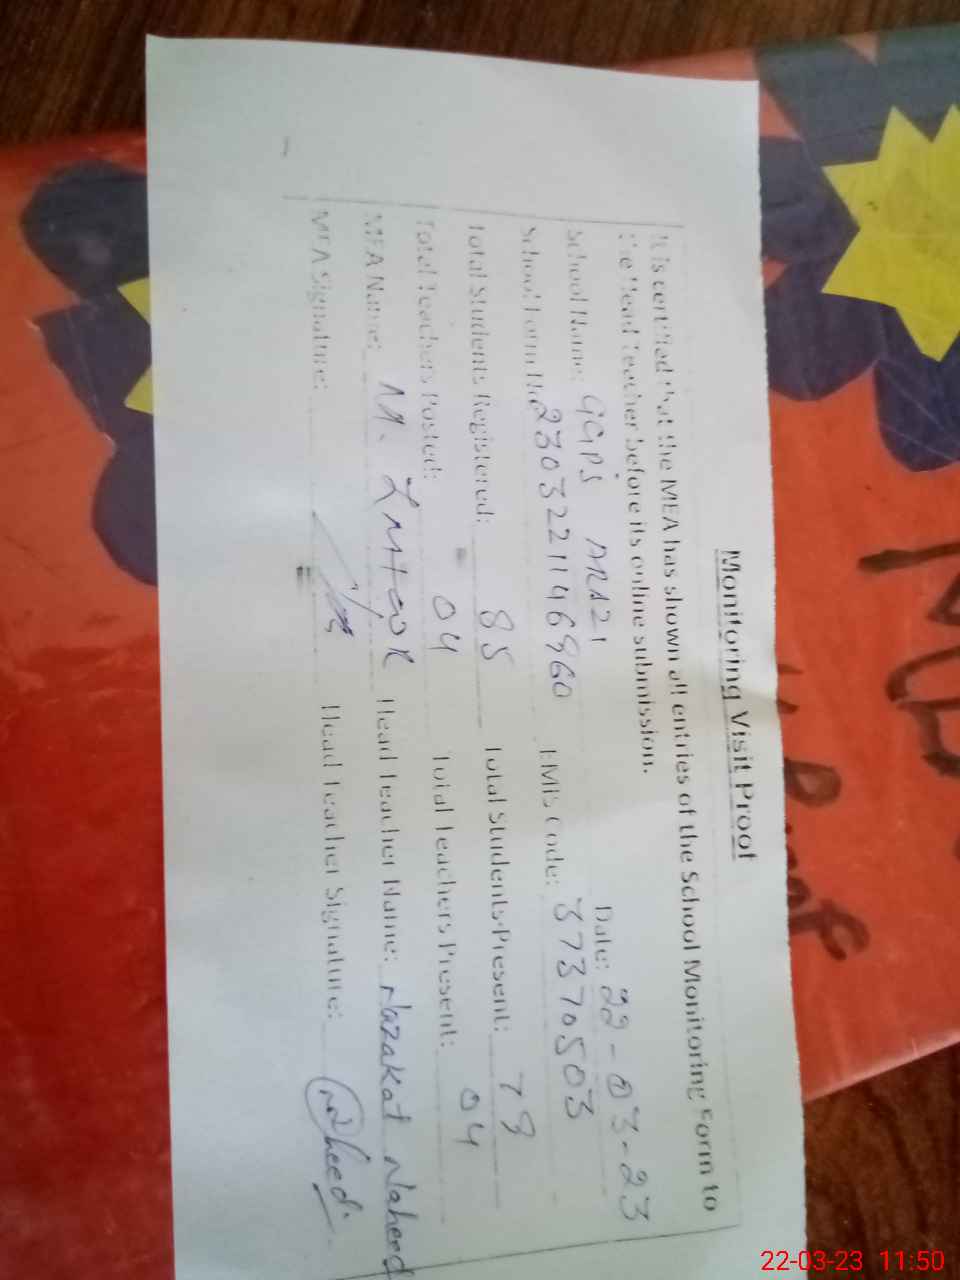 Monitoring Visit Proof
It is certified that the MEA has shown all entries of the School Monitoring Form to
the Head Teacher before its online submission.
Date: 22-03-23
School Name: GGPS ARAZI
School Form No: 2303221146960 EMIS Code: 37370503
Total Students Registered: 85 Total Students Present: 78
Total Teachers Posted: 04 Total Teachers Present: 04
MEA Name: M. Head Teacher Name: Nazakat Naheed
MEA Signature: Head Teacher Signature: Naheed
22-03-23 11:50